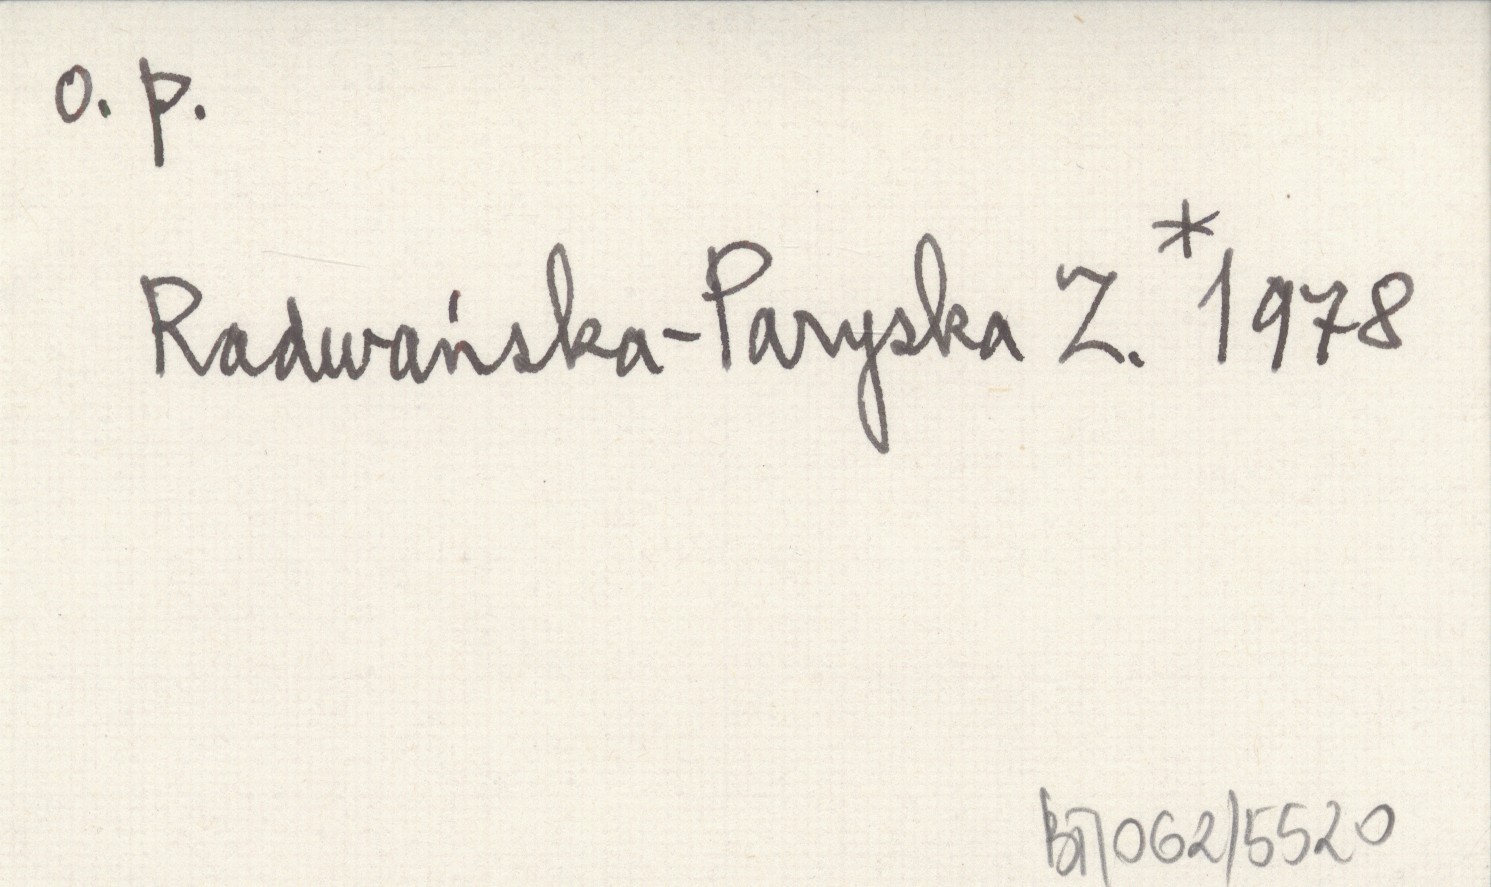 o. p.
Radwańska-Paryska Z.*1978
BT/062/5520